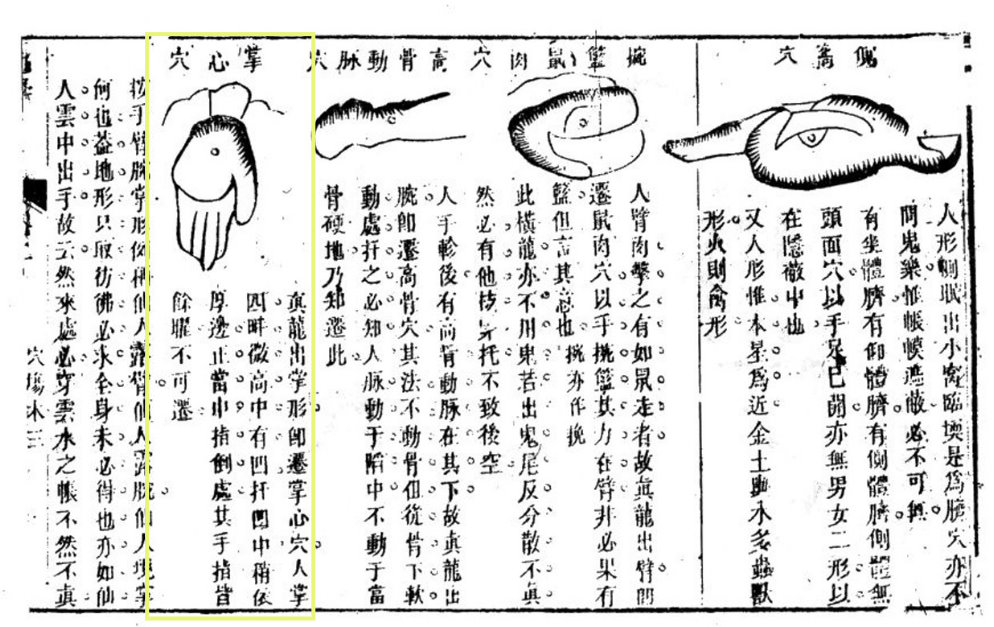 穴
人形側眠出小窩臨是為臍穴亦不
問鬼樂惟帳幙遮蔽必不可無
有坐體臍有仰體臍有側體臍側體無
頭面穴以手足已開亦無男女二形以
在隱蔽中也
又人形惟本星為近金土與水多蟲獸
形火則禽形
籃鼠肉穴
人臂肉擊之有如鼠走者故真龍出臂即
遷鼠肉穴以手挽籃其力在臂非必果有
籃但言其意也 亦作挽
此橫龍亦不用鬼若出鬼尾反分散不真
然必有他枝身托不致後空
高骨動脉穴
人手軫後有高骨動脉在其下故真龍出
腕即遷高骨穴其法不動骨但從骨下軟
動處扦之必知人脉動于陷中不動于當
骨硬地乃知遷此
掌心穴
真龍出掌形即遷掌心穴人掌
四畔微高中有凹扦凹中稍依
厚邊正當中指倒處其手指皆
餘曜不可遷
按手臂腕掌形俗稱仙人露臂仙人露腕仙人現掌
何也葢地形只取彷彿必求全身未必得也亦如仙
人雲中出手故云然來處必穿雲水之帳不然不真
穴塲 三